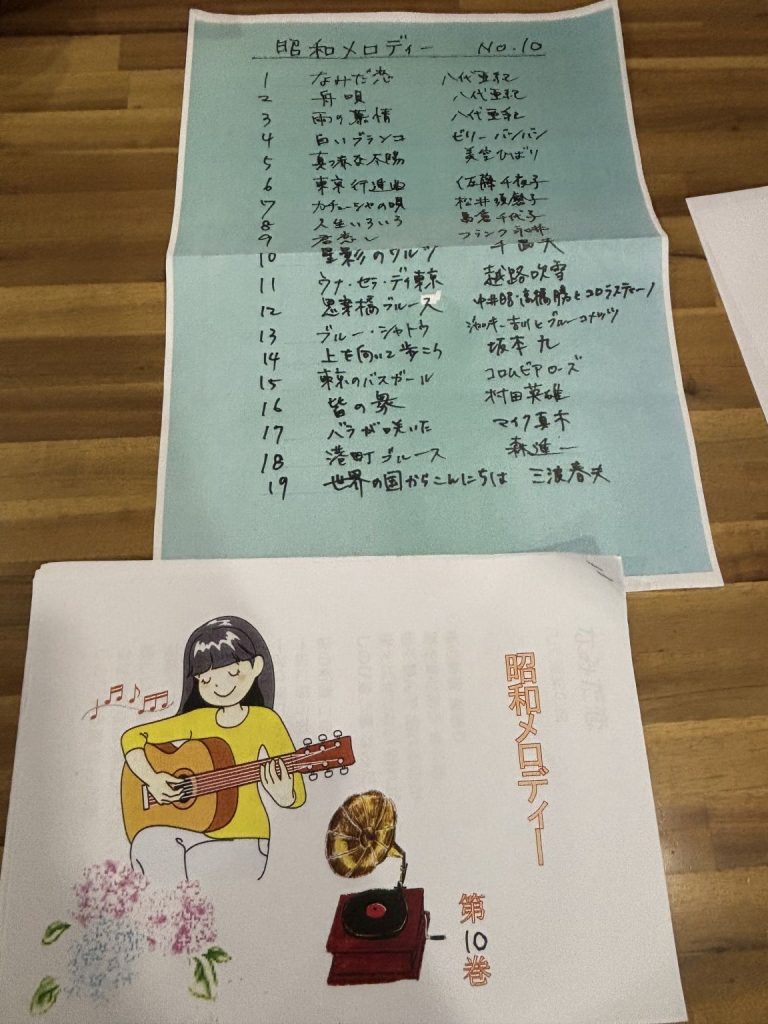 昭和メロディー No.10
1 なみだ恋 八代亜紀
2 舟唄 八代亜紀
3 雨の慕情 八代亜紀
4 白いブランコ ビリー バンバン
5 真赤な太陽 美空ひばり
6 東京行進曲 佐藤千夜子
7 カチューシャの唄 松井須磨子
8 人生いろいろ 島倉千代子
9 君恋し フランク永井
10 星影のワルツ 千昌夫
11 ウナ・セラ・ディ東京 越路吹雪
12 思案橋ブルース 中井昭・高橋勝とコロラティーノ
13 ブルー・シャトウ ジャッキー吉川とブルーコメッツ
14 上を向いて歩こう 坂本九
15 東京のバスガール コロムビアローズ
16 皆の衆 村田英雄
17 バラが咲いた マイク真木
18 港町ブルース 森進一
19 世界の国からこんにちは 三波春夫
昭和メロディー
第10巻